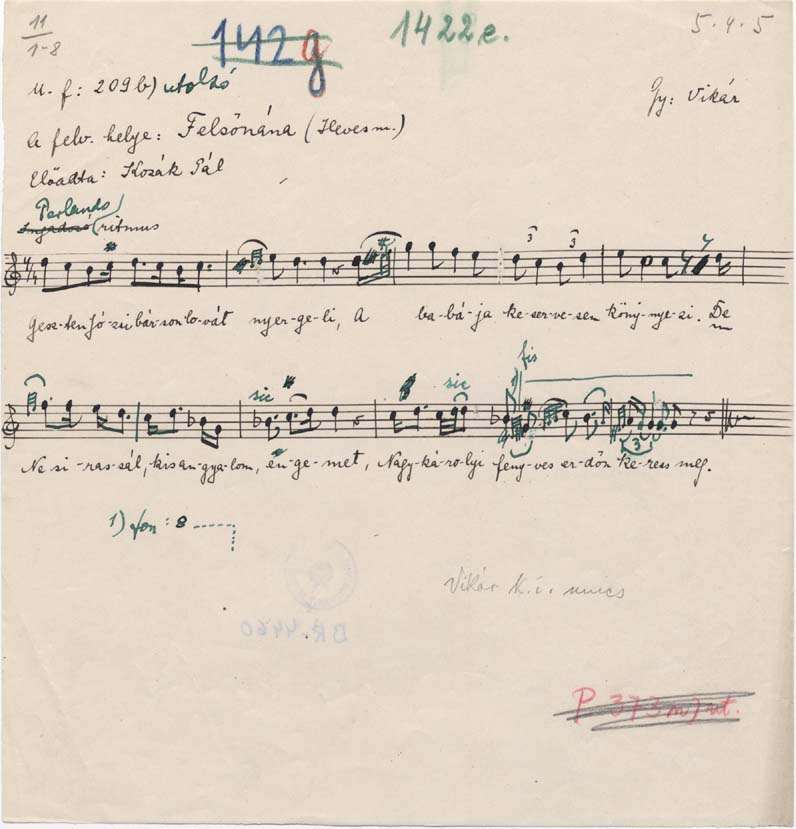 11
1-8
142g
1422e.
5.4.5
M. f: 209b) utolsó
Gy: Vikár
A felv. helye: Felsőnána (Hevesm.)
Előadta: Kozák Pál
Parlando
(ritmus
3 3
Gesz-ten Jó-zsi bár-son lo-vát nyer-ge-li, A ba-bá-ja ke-ser-ve-sen köny-nye-zi. De
fis
sic sic
1)
3
Ne si-ras-sál, kis an-gya-lom, en-ge-met, Nagy-ká-ro-lyi feny-ves er-dőn ke-ress meg.
1) fon: 8
Vikár K.i. nincs
BR. 4460
P 373m) ut.